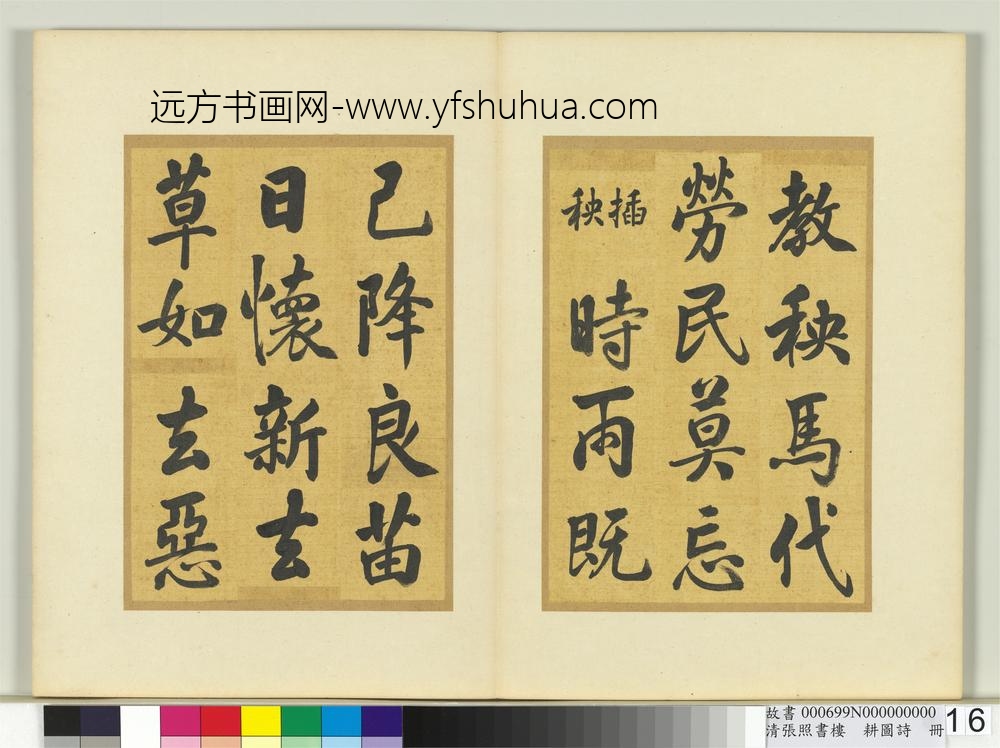 远方书画网-www.yfshuhua.com
教秧馬代
勞民莫忘
插秧
時雨既
已降良苗
日懷新去
草如去惡
故書 000699N000000000
清張照書樓 耕圖詩 冊
16